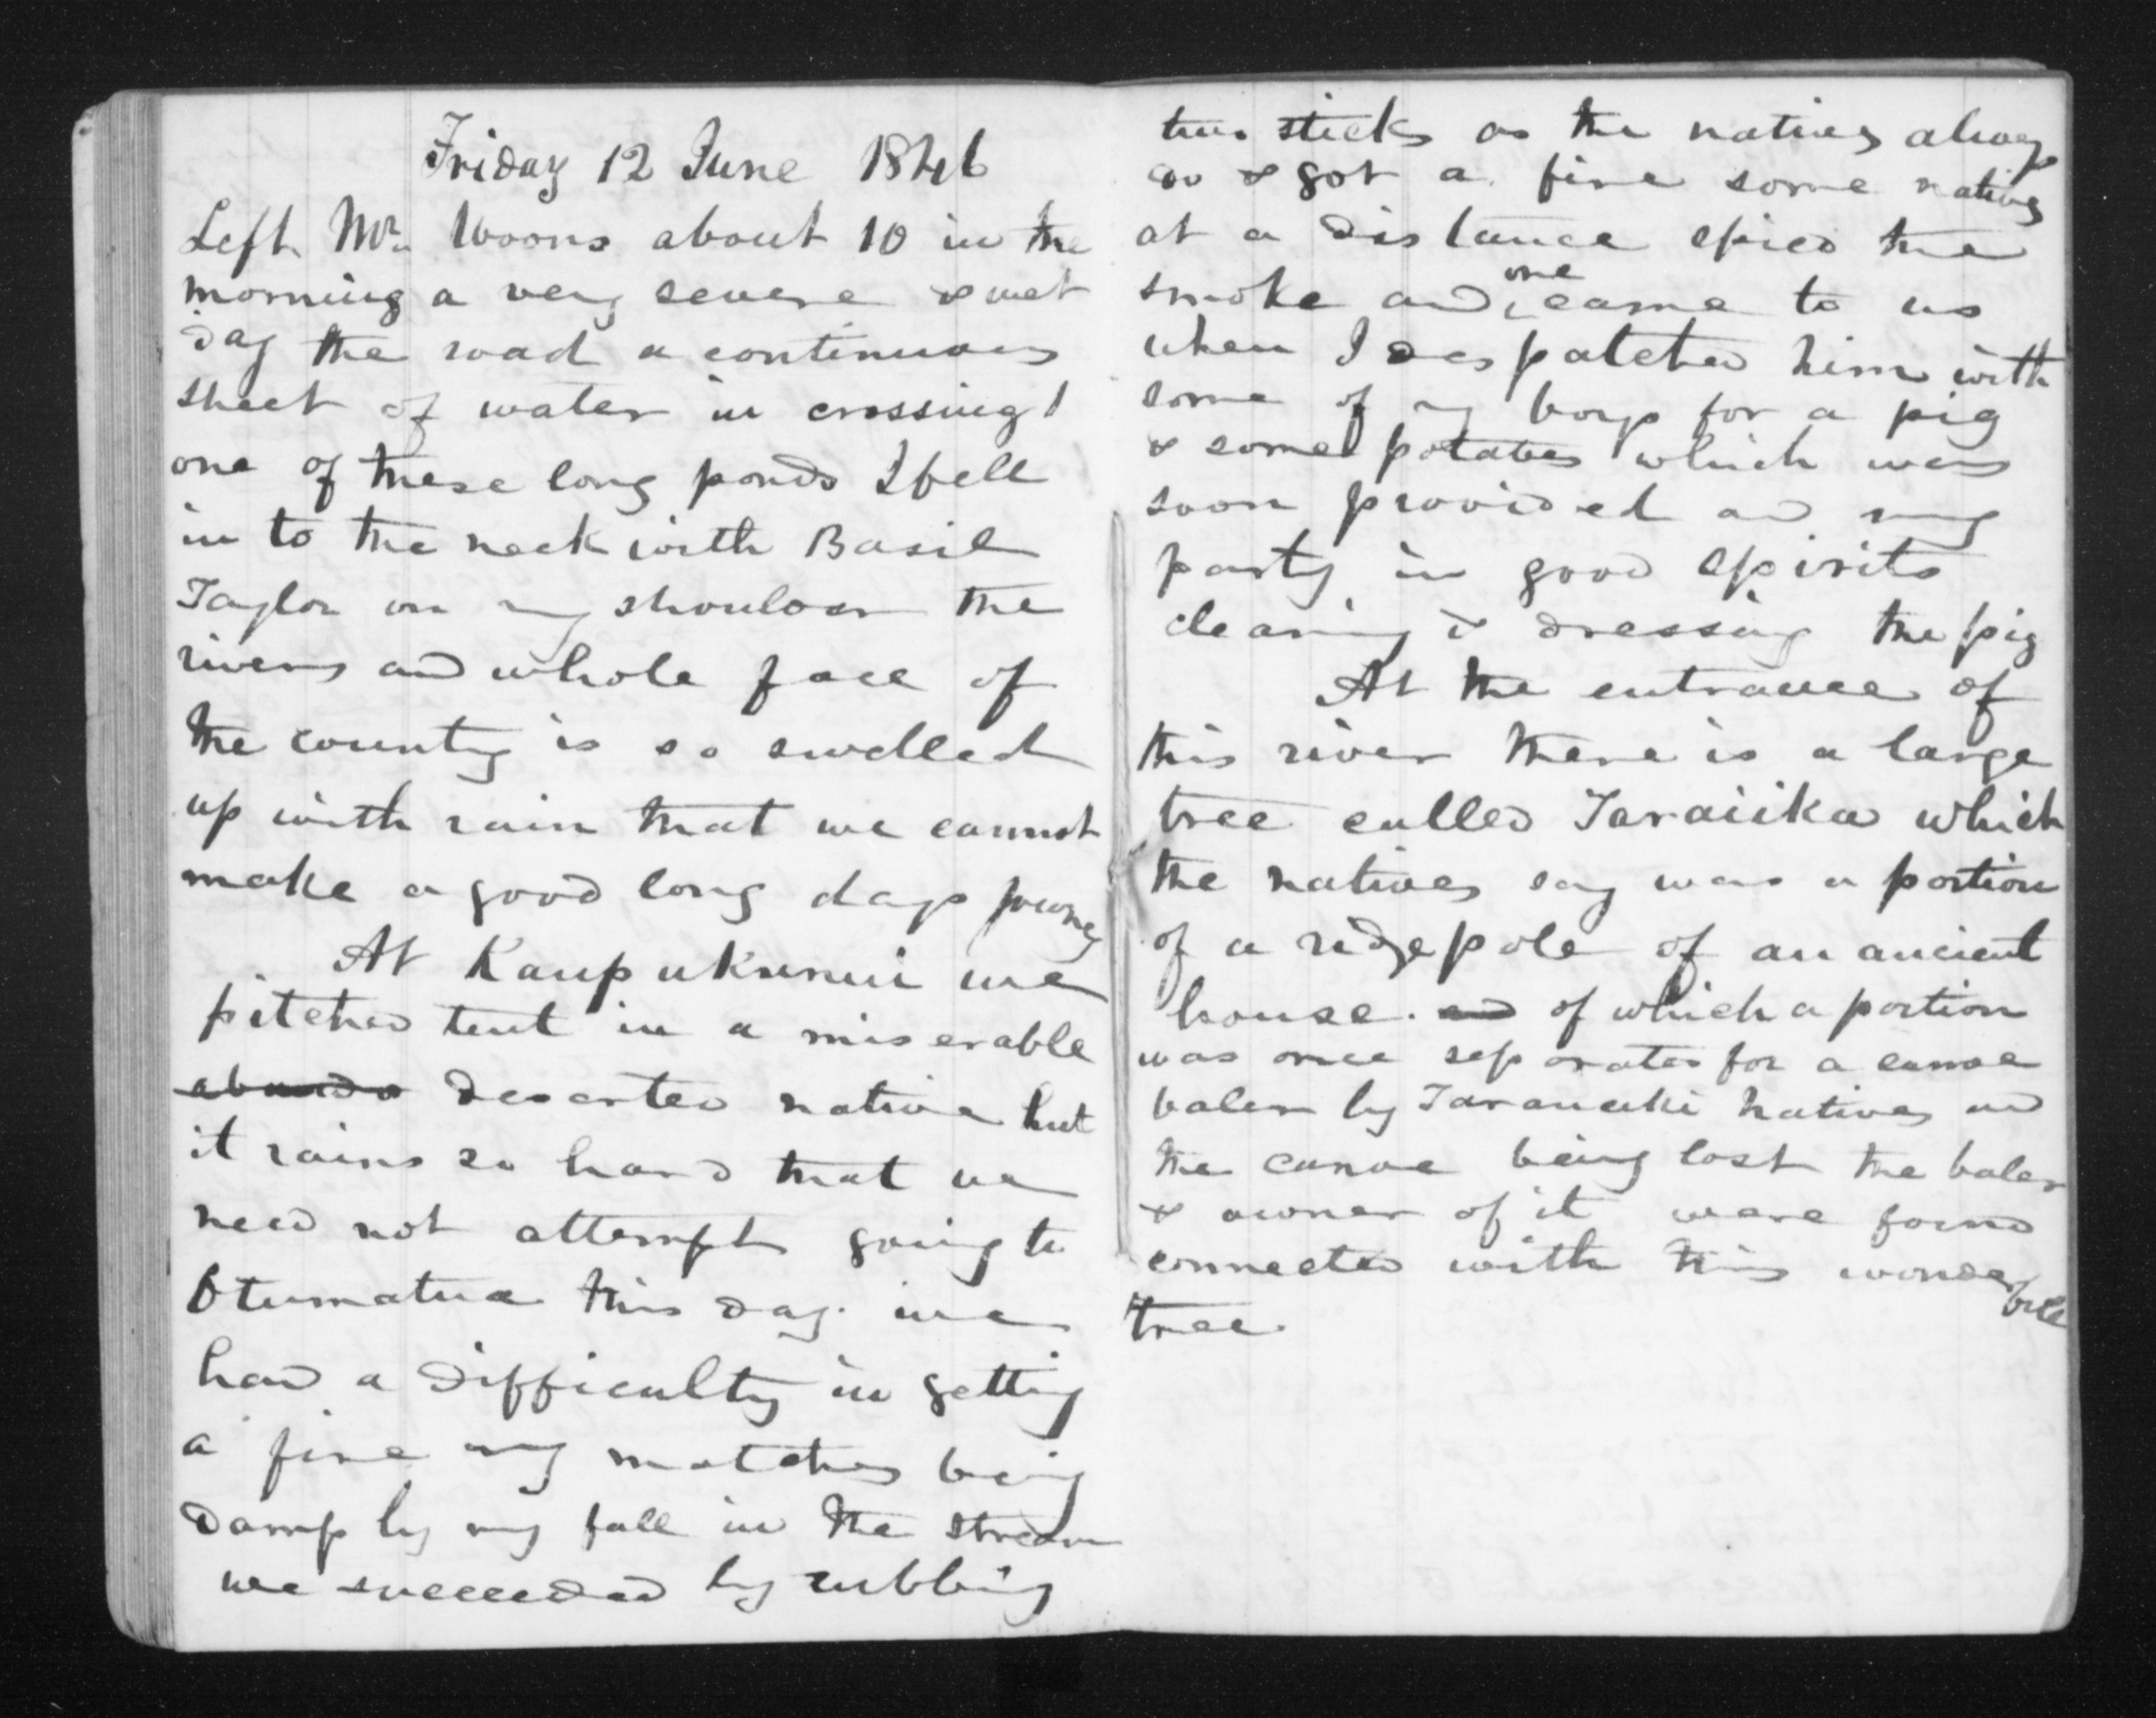 Friday 12 June 1846
Left Mr. Woons about 10 in the
morning a very severe & wet
day the road a continuous
sheet of water in crossing
one of these long ponds I fell
in to the neck with Basil
Taylor on my shoulder the
rivers and whole face of
the country is so swelled
up with rain that we cannot
make a good long days journey
At Kaupukunui we
pitched tent in a miserable
deserted native hut
it rains so hard that we
need not attempt going to
Otumatua this day. we
had a difficulty in getting
a fire my matches being
damp by my fall in the stream
we succeeded by rubbing
two sticks as the natives always
do & got a fire some natives
at a distance spied the
smoke and one came to us
when I despatched him with
some of my boys for a pig
& some potatoes which was
soon provided and my
party in good spirits
cleaning & dressing the pig
At the entrance of
this river there is a large
tree called Taraiika which
the natives say was a portion
of a ridgepole of an ancient
house. and of which a portion
was once separated for a canoe
baler by Taranaki natives and
the canoe being lost the baler
& owner of it were found
connected with this wonderful
tree.